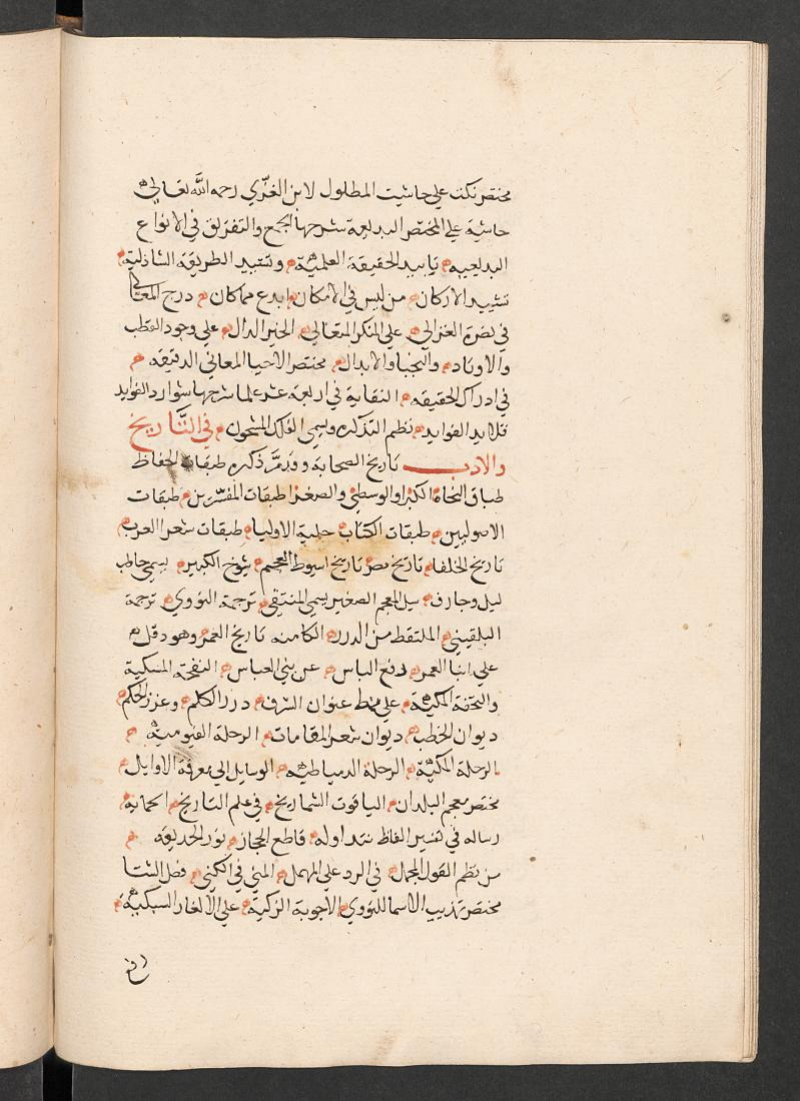 مختصر نكت علي حاشيت المطلول لابن الغزّي رحمه الله تعالي
حاشية علي المختصر البديعة شرحها الجمع والتفريق في الانواع
البديعيه تاييد الحقيقة العلمية وتشييد الطريقة الشاذلية
تشييد الاركان من ليس في الامكان ابدع مما كان درج المعالي
في نصرة الغزالي علي المنكر المتعالي الخبر الدال علي وجود القطب
والاوتاد والنجبا والابدال مختصر الاحيا المعاني الدقيقه
في ادراك الحقيقه النقاية في اربعة عشر علما شرحها شوارد الفوايد
قلايد الفوايد نظم التذكره ويسمي الفلك المشحون في التّاريخ
والادب تاريخ الصحابة وقد مَرَّ ذكره طبقات الحفاظ
طبقات النحاة الكبرا والوسطي والصغرا طبقات المفسّرين طبقات
الاصوليين طبقات الكتّاب حلية الاوليا طبقات شعرا العرب
تاريخ الخلفا تاريخ مصر تاريخ اسيوط المعجم شيوخ الكبير يسمي حاطب
ليل وجارف سيل المعجم الصغير يسمي المنتقي ترجمة النووي ترجمة
البلقيني الملتقط من الدرر الكامنه تاريخ العمر وهو دفل
علي انبا العمر رفع الباس عن بني العباس النفحة المسكية
والتحفة المكية علي نمط عنوان الشرف درر الكلم وغرر الحكم
ديوان الخطب ديوان شعر المقامات الرحلة الفيومية
الرحلة المكية الرحلة الدمياطيه الوسايل الي معرفة الاوايل
مختصر معجم البلدان الياقوت الشماريخ في علم التاريخ الجمانة
رساله في تفسير الفاظ متداوله قاطع المجاز نور الحديقه
من نظم القول المجمل في الرد علي المهمل المني في الكني فضل الشتا
مختصر تهذيب الاسما للنووي الاجوبة الزكية علي الالغاز السبكية